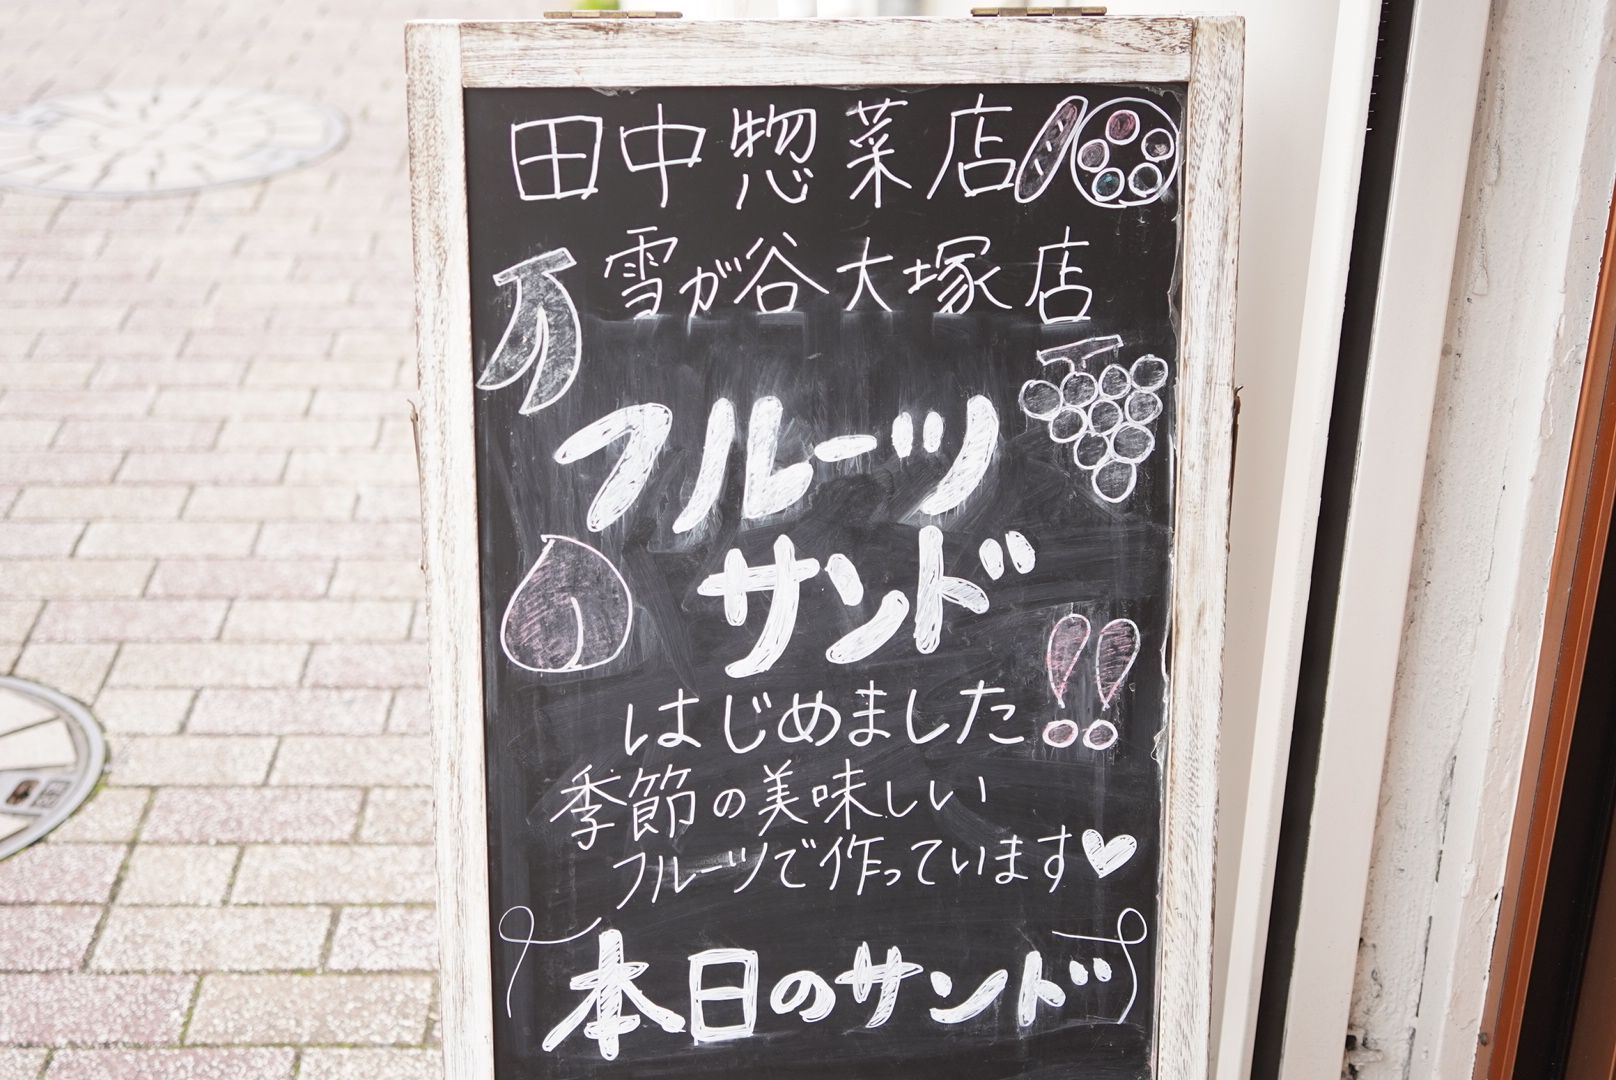 田中惣菜店
雪が谷大塚店
フルーツ
サンド
はじめました!!
季節の美味しい
フルーツで作っています♥
本日のサンド